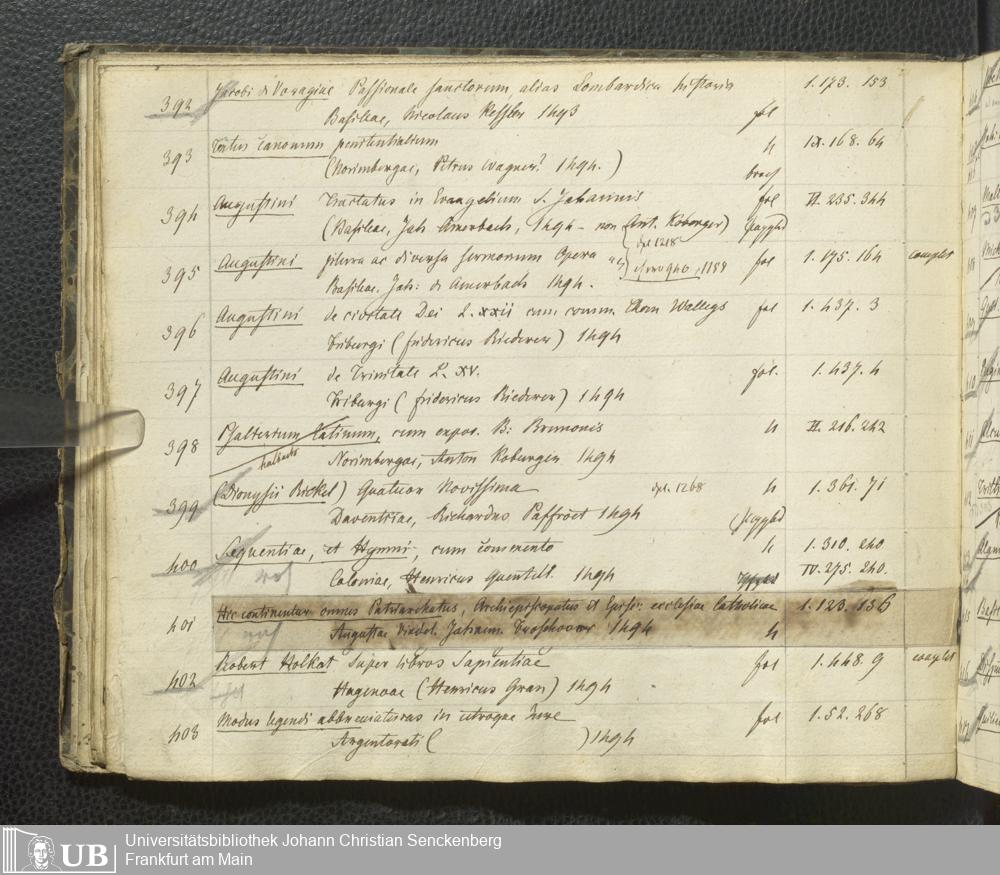 392 Jacobi di Voragine Passionale sanctorum, alias Lombardica historia 1.173. 153
Basileae, Nicolaus Kessler 1493 fol
393 Textus canonum penitentialium 4 IX.168. 64
(Norimbergae, Petrus Wagner? 1494.) brosch
394 Augustini Tractatus in Evangelium S. Johannis fol II. 235. 344
(Basileae, Joh Amerbach, 1494 – non Ant. Koberger)
395 Augustini plura ac diversa sermonum Opera fol 1. 175. 164 complet
Basileae. Joh: de Amerbach 1494.
396 Augustini de civitate Dei L. xxii cum comm. Thom Wallegs fol 1. 437. 3
Friburgi (fridericus Riederer) 1494
397 Augustini de Trinitate L. XV. fol. 1. 437. 4
Friburgi (fridericus Riederer) 1494
398 Psalterium latinum, cum expos. B: Brunonis 4 II. 216. 242
Norimbergae, Anton Koburger 1494
399 (Dionysii Rickel) Quatuor Novissima dpl. 1268 4 1. 361. 71
Daventriae, Richardus Paffroet 1494
400 Sequentiae, et Hymni, cum commento 4 1. 310. 240
Coloniae, Henricus Quentell. 1494 IV. 275. 240.
401 Hic continentur omnes Patriarchatus, Archiepiscopatus et Episc: ecclesiae Catholicae 1. 123. 136
Augustae Vindel. Johann. Froschover 1494 4
402 Robert Holkat Super libros Sapientiae fol 1. 448. 9 complet
Hagenoae (Henricus Gran) 1494
403 Modus legendi abbreviaturas in utroque Jure fol 1. 52. 268
Argentorati ( ) 1494
UB Universitätsbibliothek Johann Christian Senckenberg
Frankfurt am Main